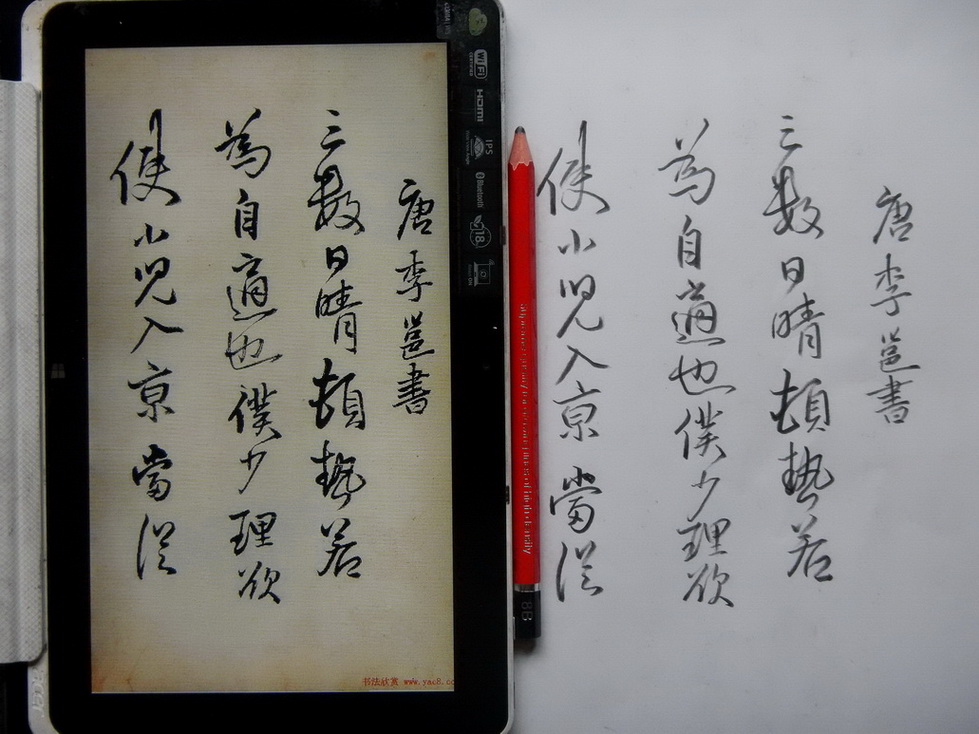 唐李邕書
三數日晴頓熱若
為自適也僕少理欲
使小兒入京當從
书法欣赏 www.yacE.co
WiFi
CERTIFIED
HDMI
IPS
Bluetooth
18
8B
唐李邕書
三數日晴頓熱若
為自適也僕少理欲
使小兒入京當從